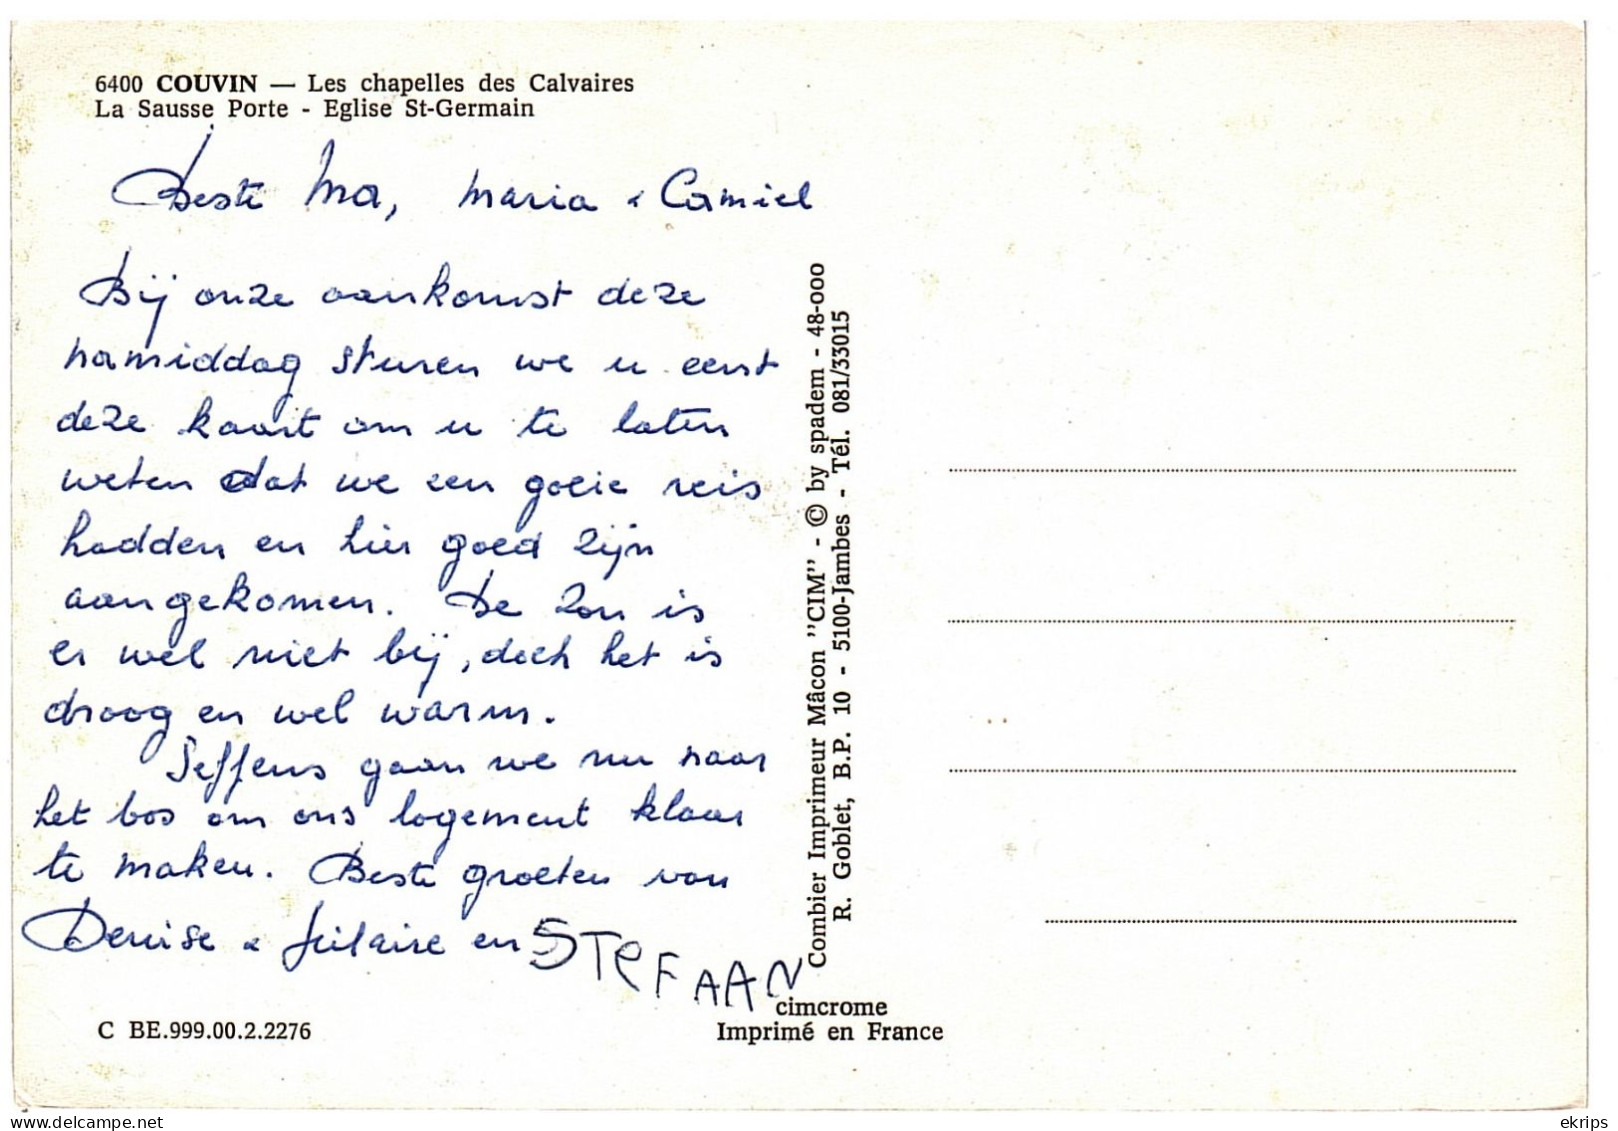 6400 COUVIN — Les chapelles des Calvaires
La Sausse Porte - Eglise St-Germain
Beste Ma, Maria & Camiel
Bij onze aankomst deze
namiddag sturen we u eerst
deze kaart om u te laten
weten dat we een goeie reis
hadden en hier goed zijn
aangekomen. De zon is
er wel niet bij, doch het is
droog en wel warm.
Seffens gaan we nu naar
het bos om ons logement klaar
te maken. Beste groeten van
Denise & Hilaire en STEFAAN
Combier Imprimeur Mâcon "CIM" - © by spadem - 48-000
R. Goblet, B.P. 10 - 5100-Jambes - Tél. 081/33015
cimcrome
C BE.999.00.2.2276
Imprimé en France
ekrips